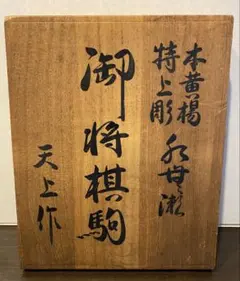 本黄楊
特上彫
水無瀬
御将棋駒
天上作